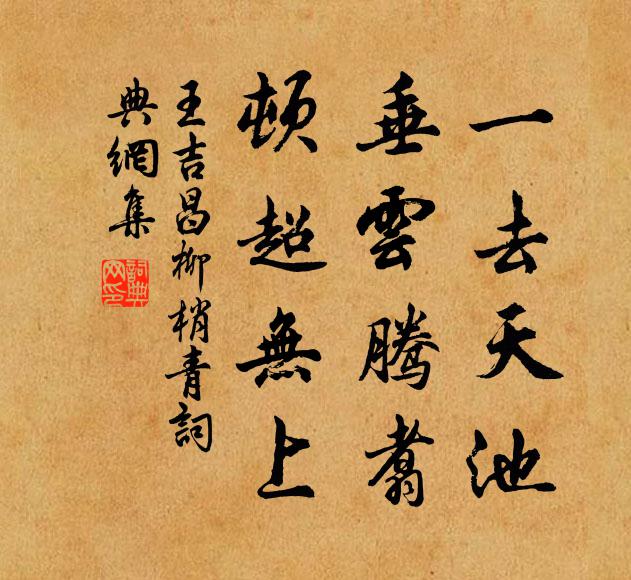 一去天池
垂雲騰翥
頓超無上
王吉昌柳梢青詞
典網集
詞典網印